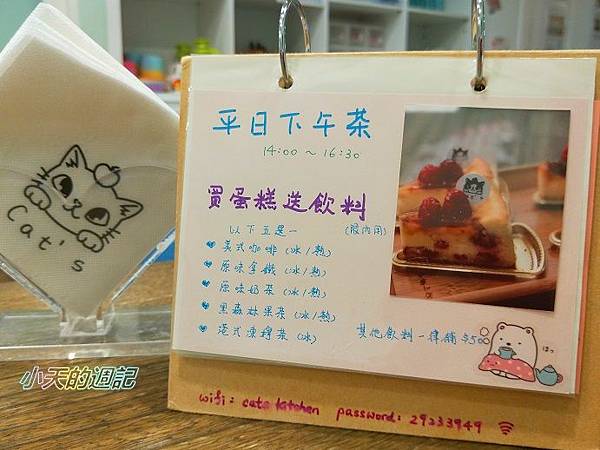 Cat's
平日下午茶
14:00 ~ 16:30
買蛋糕送飲料
以下五選一 (限內用)
美式咖啡 (冰/熱)
原味拿鐵 (冰/熱)
原味奶茶 (冰/熱)
黑森林果茶 (冰/熱)
港式凍檸茶 (冰)
其他飲料一律補$50
wifi: cats kitchen password: 29233949
小天的週記